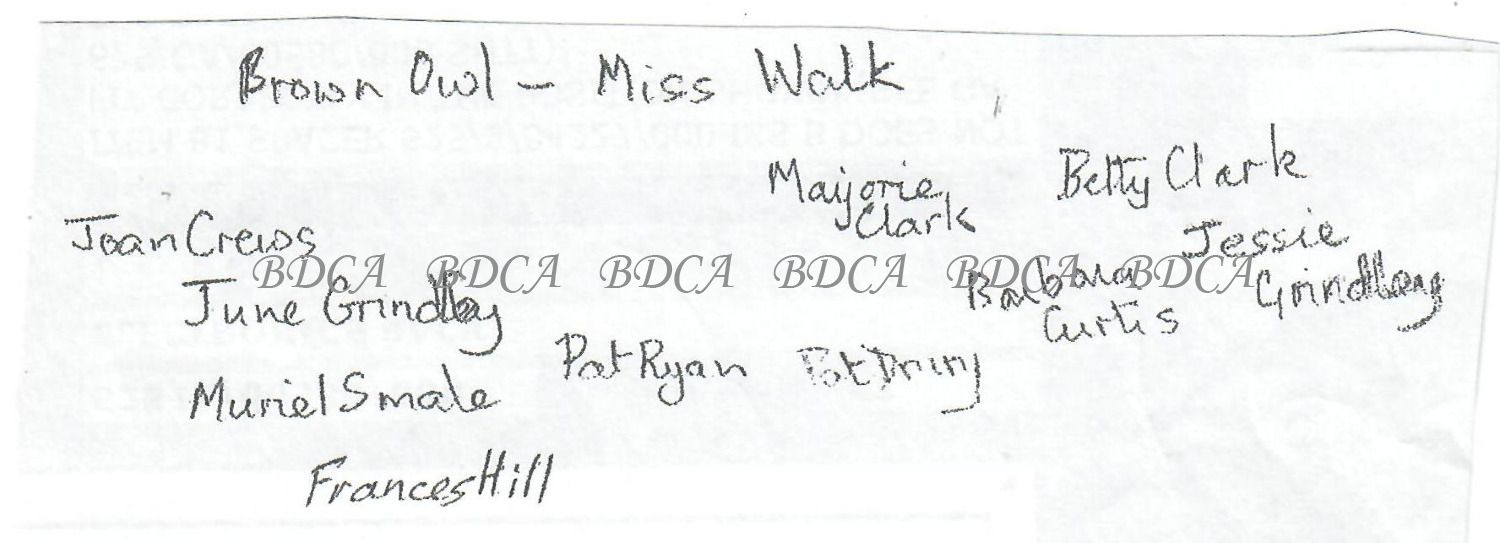 Brown Owl – Miss Walk
Marjorie
Clark
Betty Clark
Joan Crews
Jessie
Grindley
BDCA BDCA BDCA BDCA BDCA BDCA
June Grindley
Barbara
Curtis
Pat Ryan
Pat Drury
Muriel Smale
Frances Hill